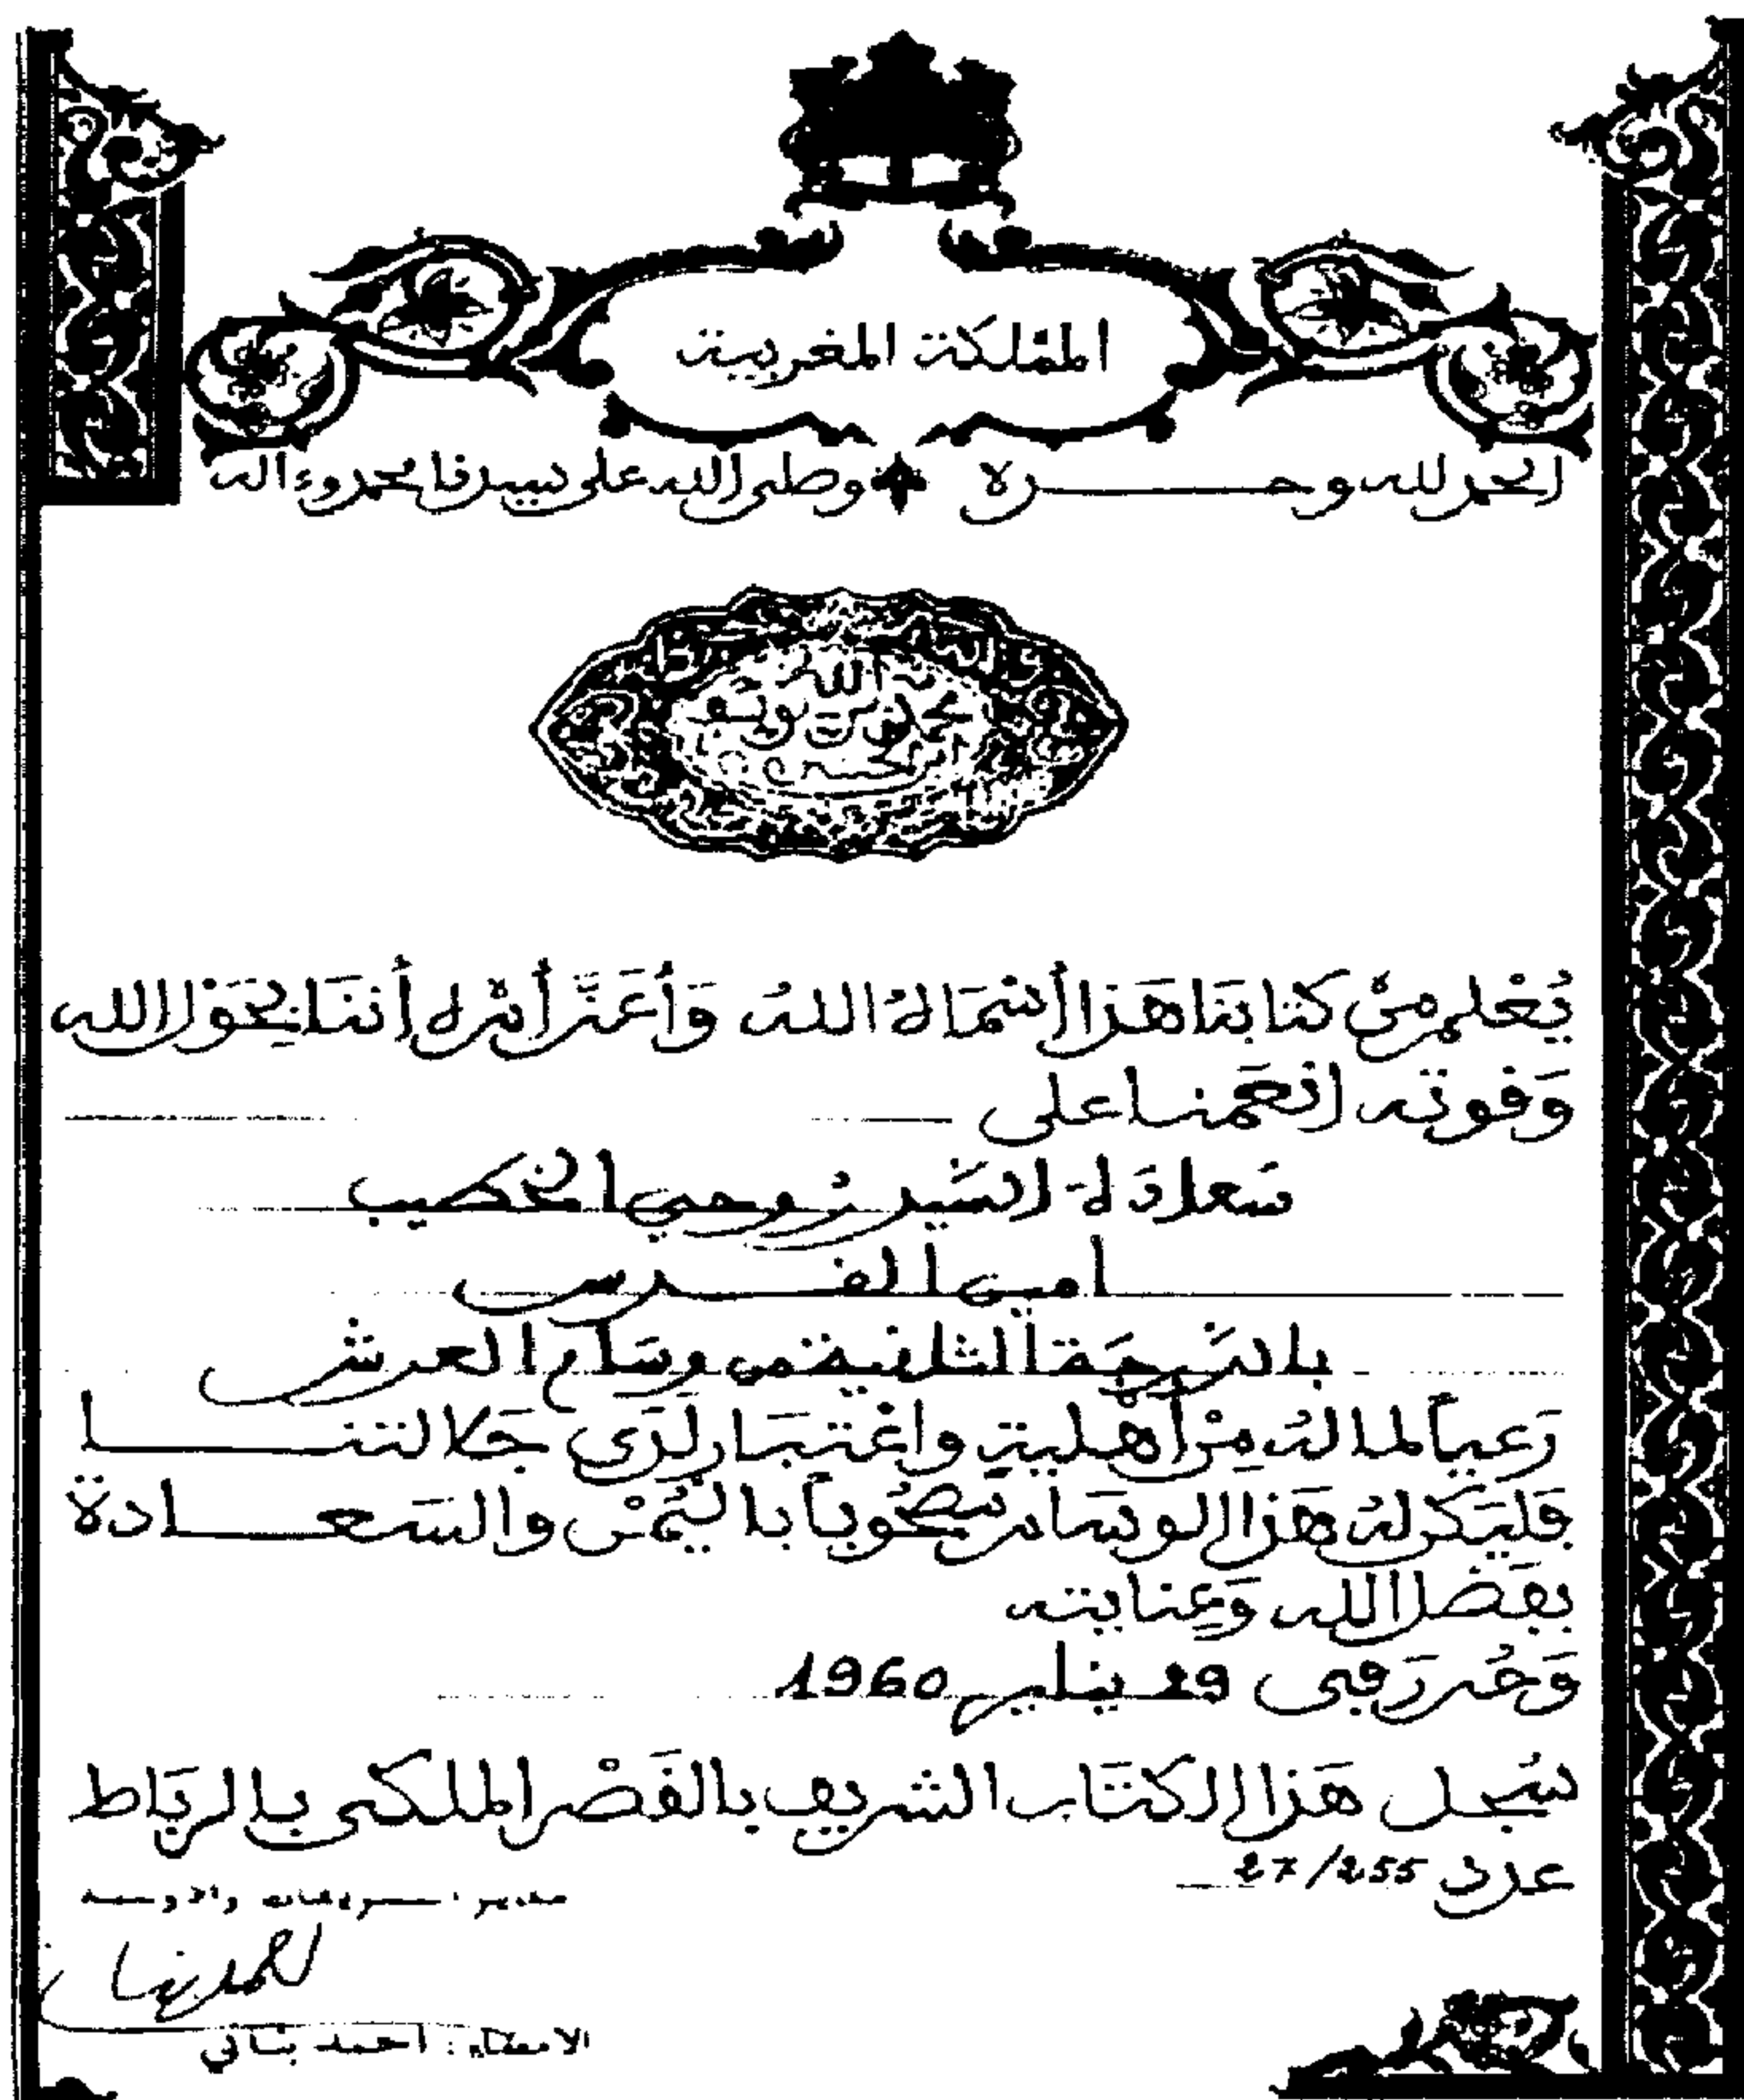 المملكة المغربية
الحمد لله وحده وصلى الله على سيدنا محمد وءاله
الله
محمد بن يوسف
بن الحسن
يُعْلم مِنْ كتابنَا هَذا أسْمَاهُ اللهُ وَأعَزَّ أمْرهُ أننَا بِحَوْل الله
وَقوته انعَمنا على
سَعادة السَيد رُوحي الخطيب
امين القدس
بالدَرجَة الثانية من وسَام العرش
رَعياً لما لهُ مِنْ أهلية واعْتبَار لدَى جَلالتنا
فليَكن لهُ هَذا الوسَام مَصْحُوباً باليُمْن والسَعادة
بفَضل الله وَعِنايته
وَحُرر فى 29 يناير 1960
سُجل هَذا الكتَاب الشريف بالقَصْر الملكى بالربَاط
عدد 27/255
مدير التشريفات والاوسمة
الامضاء : احمد بناني